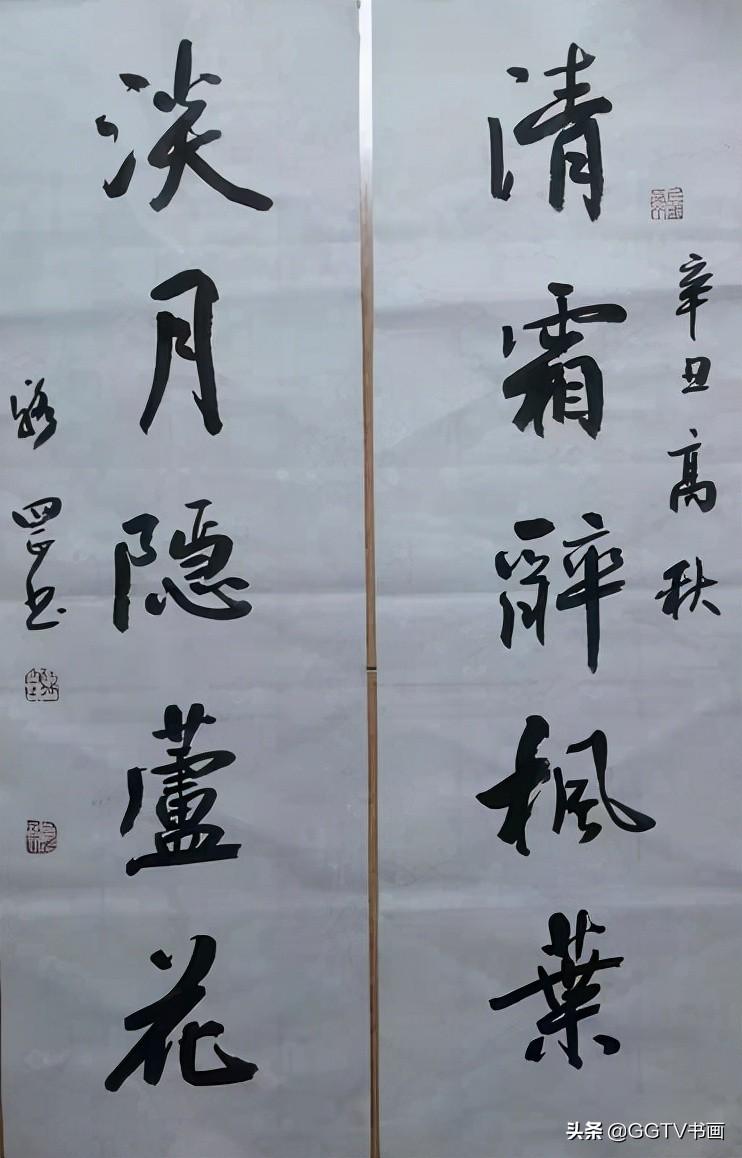 辛丑高秋
清霜醉楓葉
淡月隐蘆花
罡书
头条 @GGTV书画